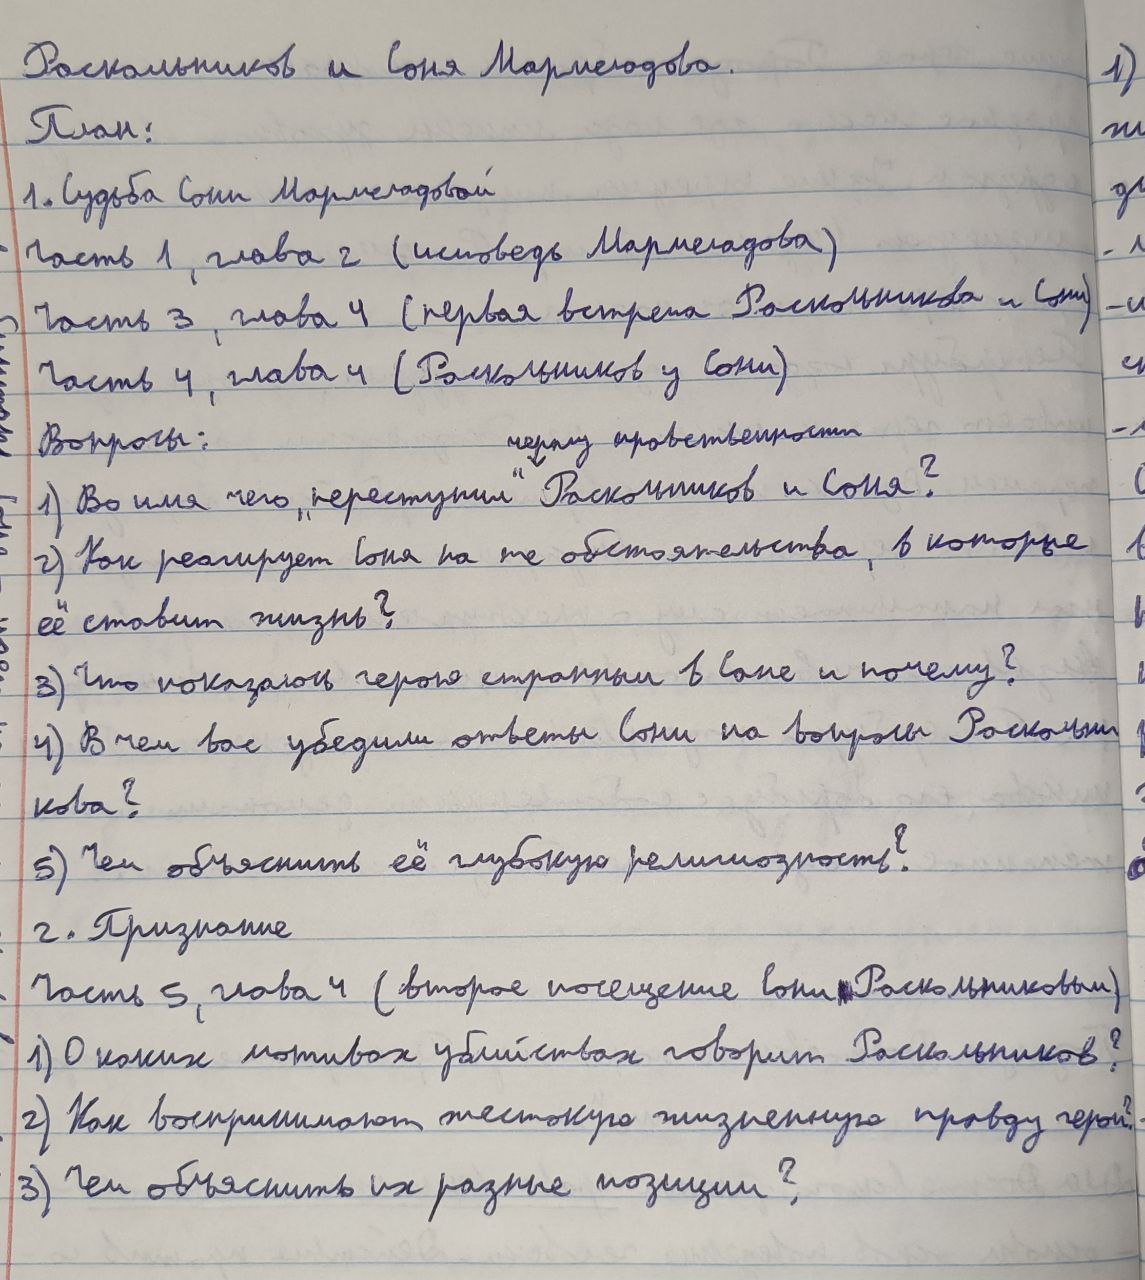 Раскольников и Соня Мармеладова.
План:
1. Судьба Сони Мармеладовой
Часть 1, глава 2 (исповедь Мармеладова)
Часть 3, глава 4 (первая встреча Раскольникова и Сони)
Часть 4, глава 4 (Раскольников у Сони)
Вопросы:
черту нравственности
1) Во имя чего „переступил“ Раскольников и Соня?
2) Как реагирует Соня на те обстоятельства, в которые
её ставит жизнь?
3) Что показалось герою странным в Соне и почему?
4) В чем вас убедили ответы Сони на вопросы Раскольни
кова?
5) Чем объяснить её глубокую религиозность?
2. Признание
Часть 5, глава 4 (второе посещение Сони Раскольниковым)
1) О каких мотивах убийствах говорит Раскольников?
2) Как воспринимают жестокую жизненную правду герои?
3) Чем объяснить их разные позиции?
1)